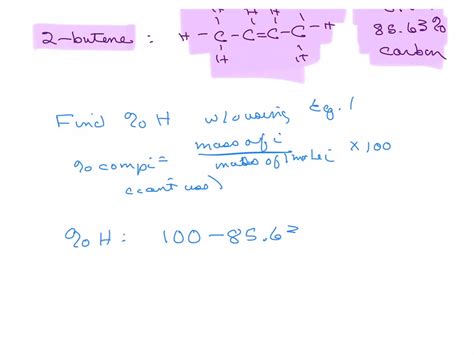 H H H H
2-butene : H - C - C = C - C - H 85.63%
H H carbon
Find % H w/o using Eq. 1
% comp i = mass of i / mass of 1 mole i × 100
(can't use)
% H : 100 - 85.63